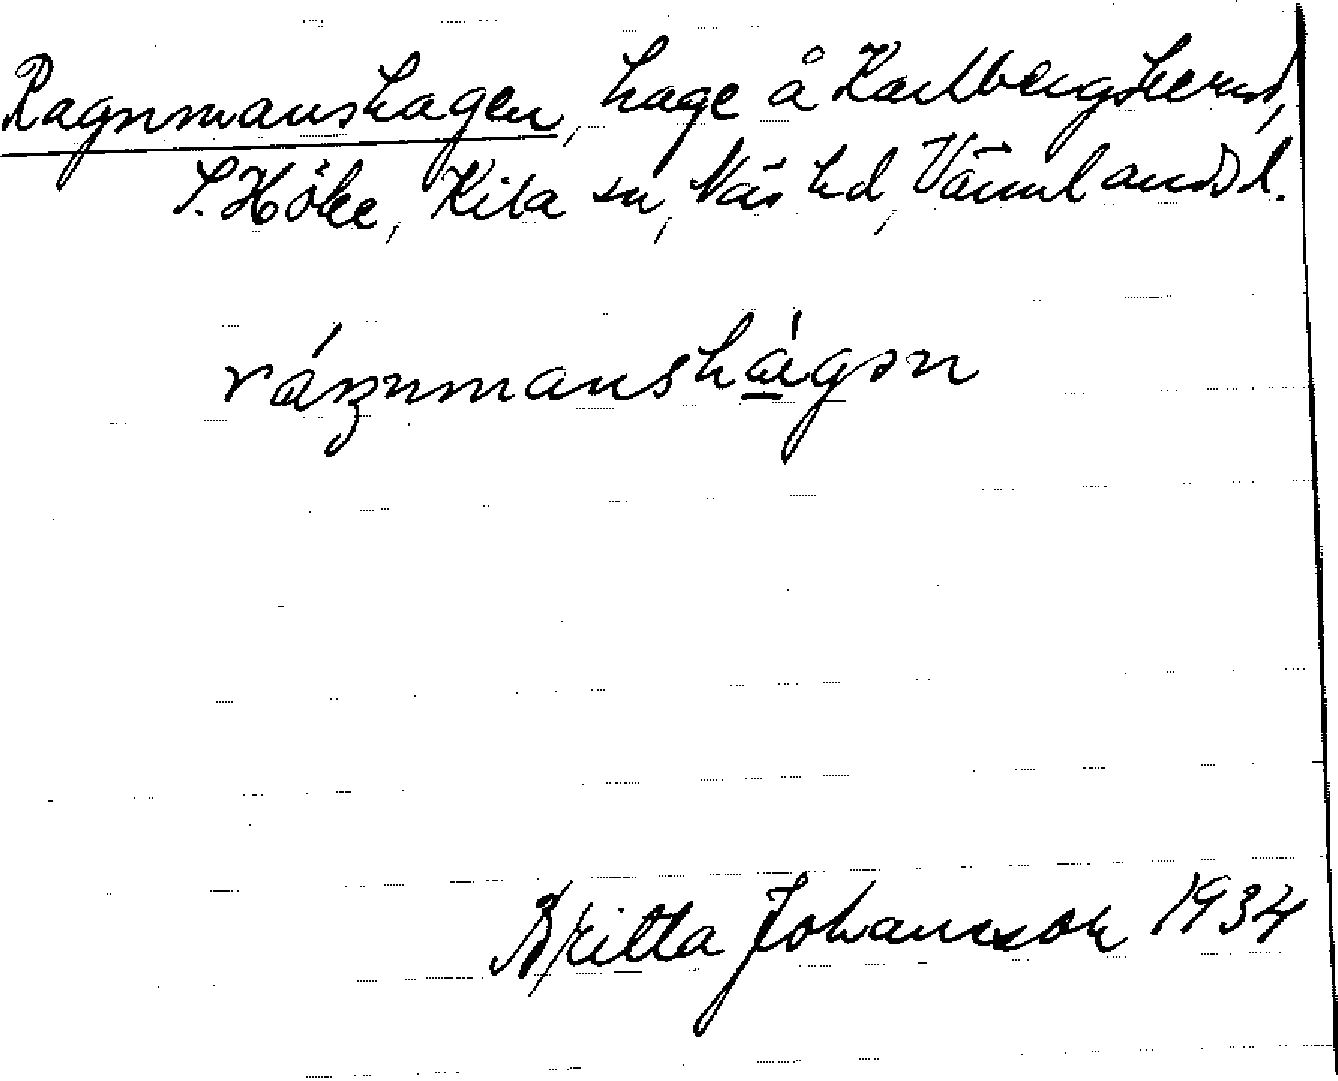 Ragnmanshagen, hage å Karlbergshemd,
S. Höke, Kila sn, Näs hd, Värmlands l.
ráŋnmanshá̱gən
Britta Johansson 1934